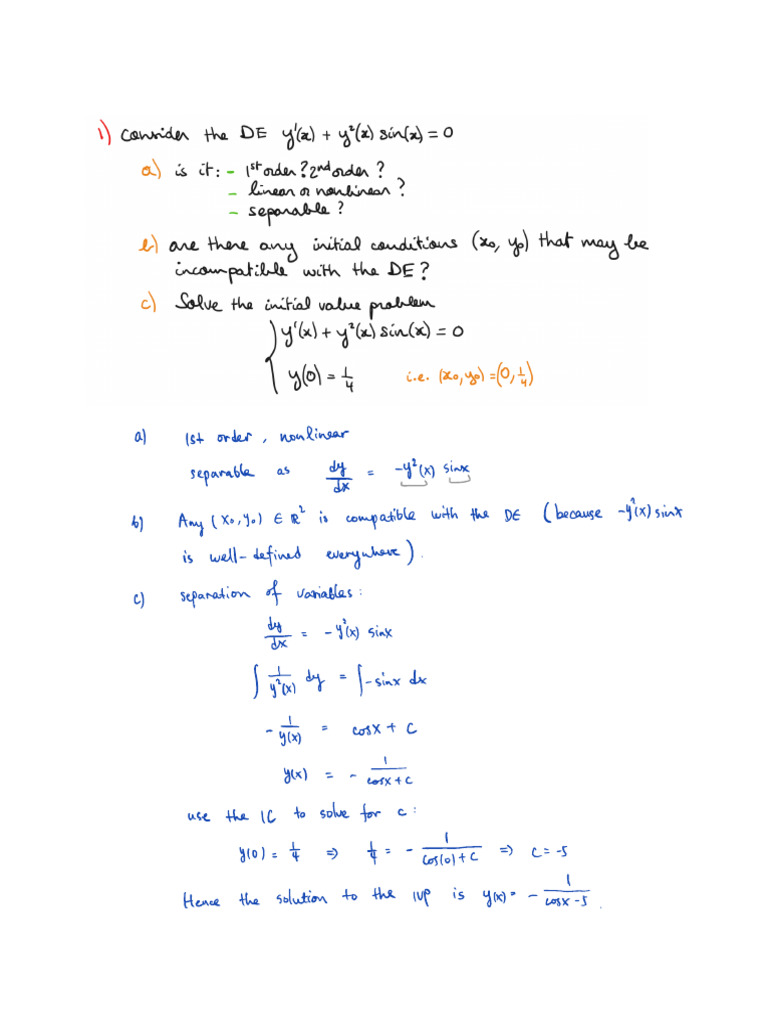 1) Consider the DE y'(x) + y²(x) sin(x) = 0
a) is it: - 1st order? 2nd order?
- linear or nonlinear?
- separable?
b) are there any initial conditions (x₀, y₀) that may be
incompatible with the DE?
c) Solve the initial value problem
{ y'(x) + y²(x) sin(x) = 0
y(0) = 1/4 i.e. (x₀, y₀) = (0, 1/4)
a) 1st order, nonlinear
separable as dy/dx = -y²(x) sinx
b) Any (x₀, y₀) ∈ ℝ² is compatible with the DE (because -y²(x) sinx
is well-defined everywhere).
c) separation of variables:
dy/dx = -y²(x) sinx
∫ 1/y²(x) dy = ∫ -sinx dx
- 1/y(x) = cosx + C
y(x) = - 1/(cosx + C)
use the IC to solve for C:
y(0) = 1/4 ⇒ 1/4 = - 1/(cos(0) + C) ⇒ C = -5
Hence the solution to the IVP is y(x) = - 1/(cosx - 5).